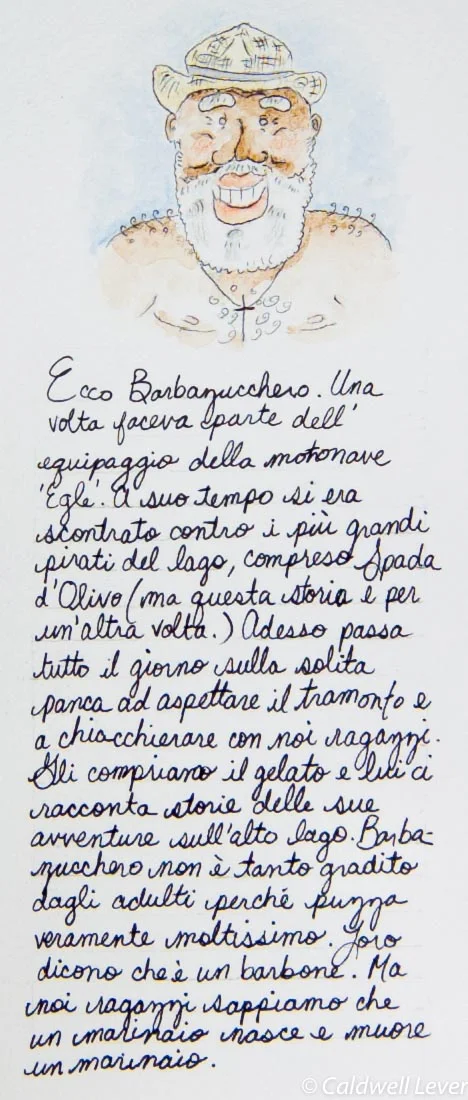 Ecco Barbazucchero. Una
volta faceva parte dell'
equipaggio della motonave
'Eglé'. A suo tempo si era
scontrato contro i più grandi
pirati del lago, compreso Spada
d'Olivo (ma questa storia è per
un'altra volta.) Adesso passa
tutto il giorno sulla solita
panca ad aspettare il tramonto e
a chiacchierare con noi ragazzi.
Gli compriamo il gelato e lui ci
racconta storie delle sue
avventure sull'alto lago. Barba-
zucchero non è tanto gradito
dagli adulti perché puzza
veramente moltissimo. Loro
dicono che è un barbone. Ma
noi ragazzi sappiamo che
un marinaio nasce e muore
un marinaio.
© Caldwell Lever